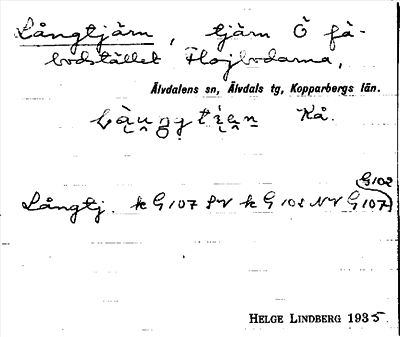 Långtjärn, tjärn Ö fä-
bodstället Flojbodarna,
Älvdalens sn, Älvdals tg, Kopparbergs län.
Kå.
G102
Långtj. k G107 SV k G102 NV G107)
HELGE LINDBERG 1935.